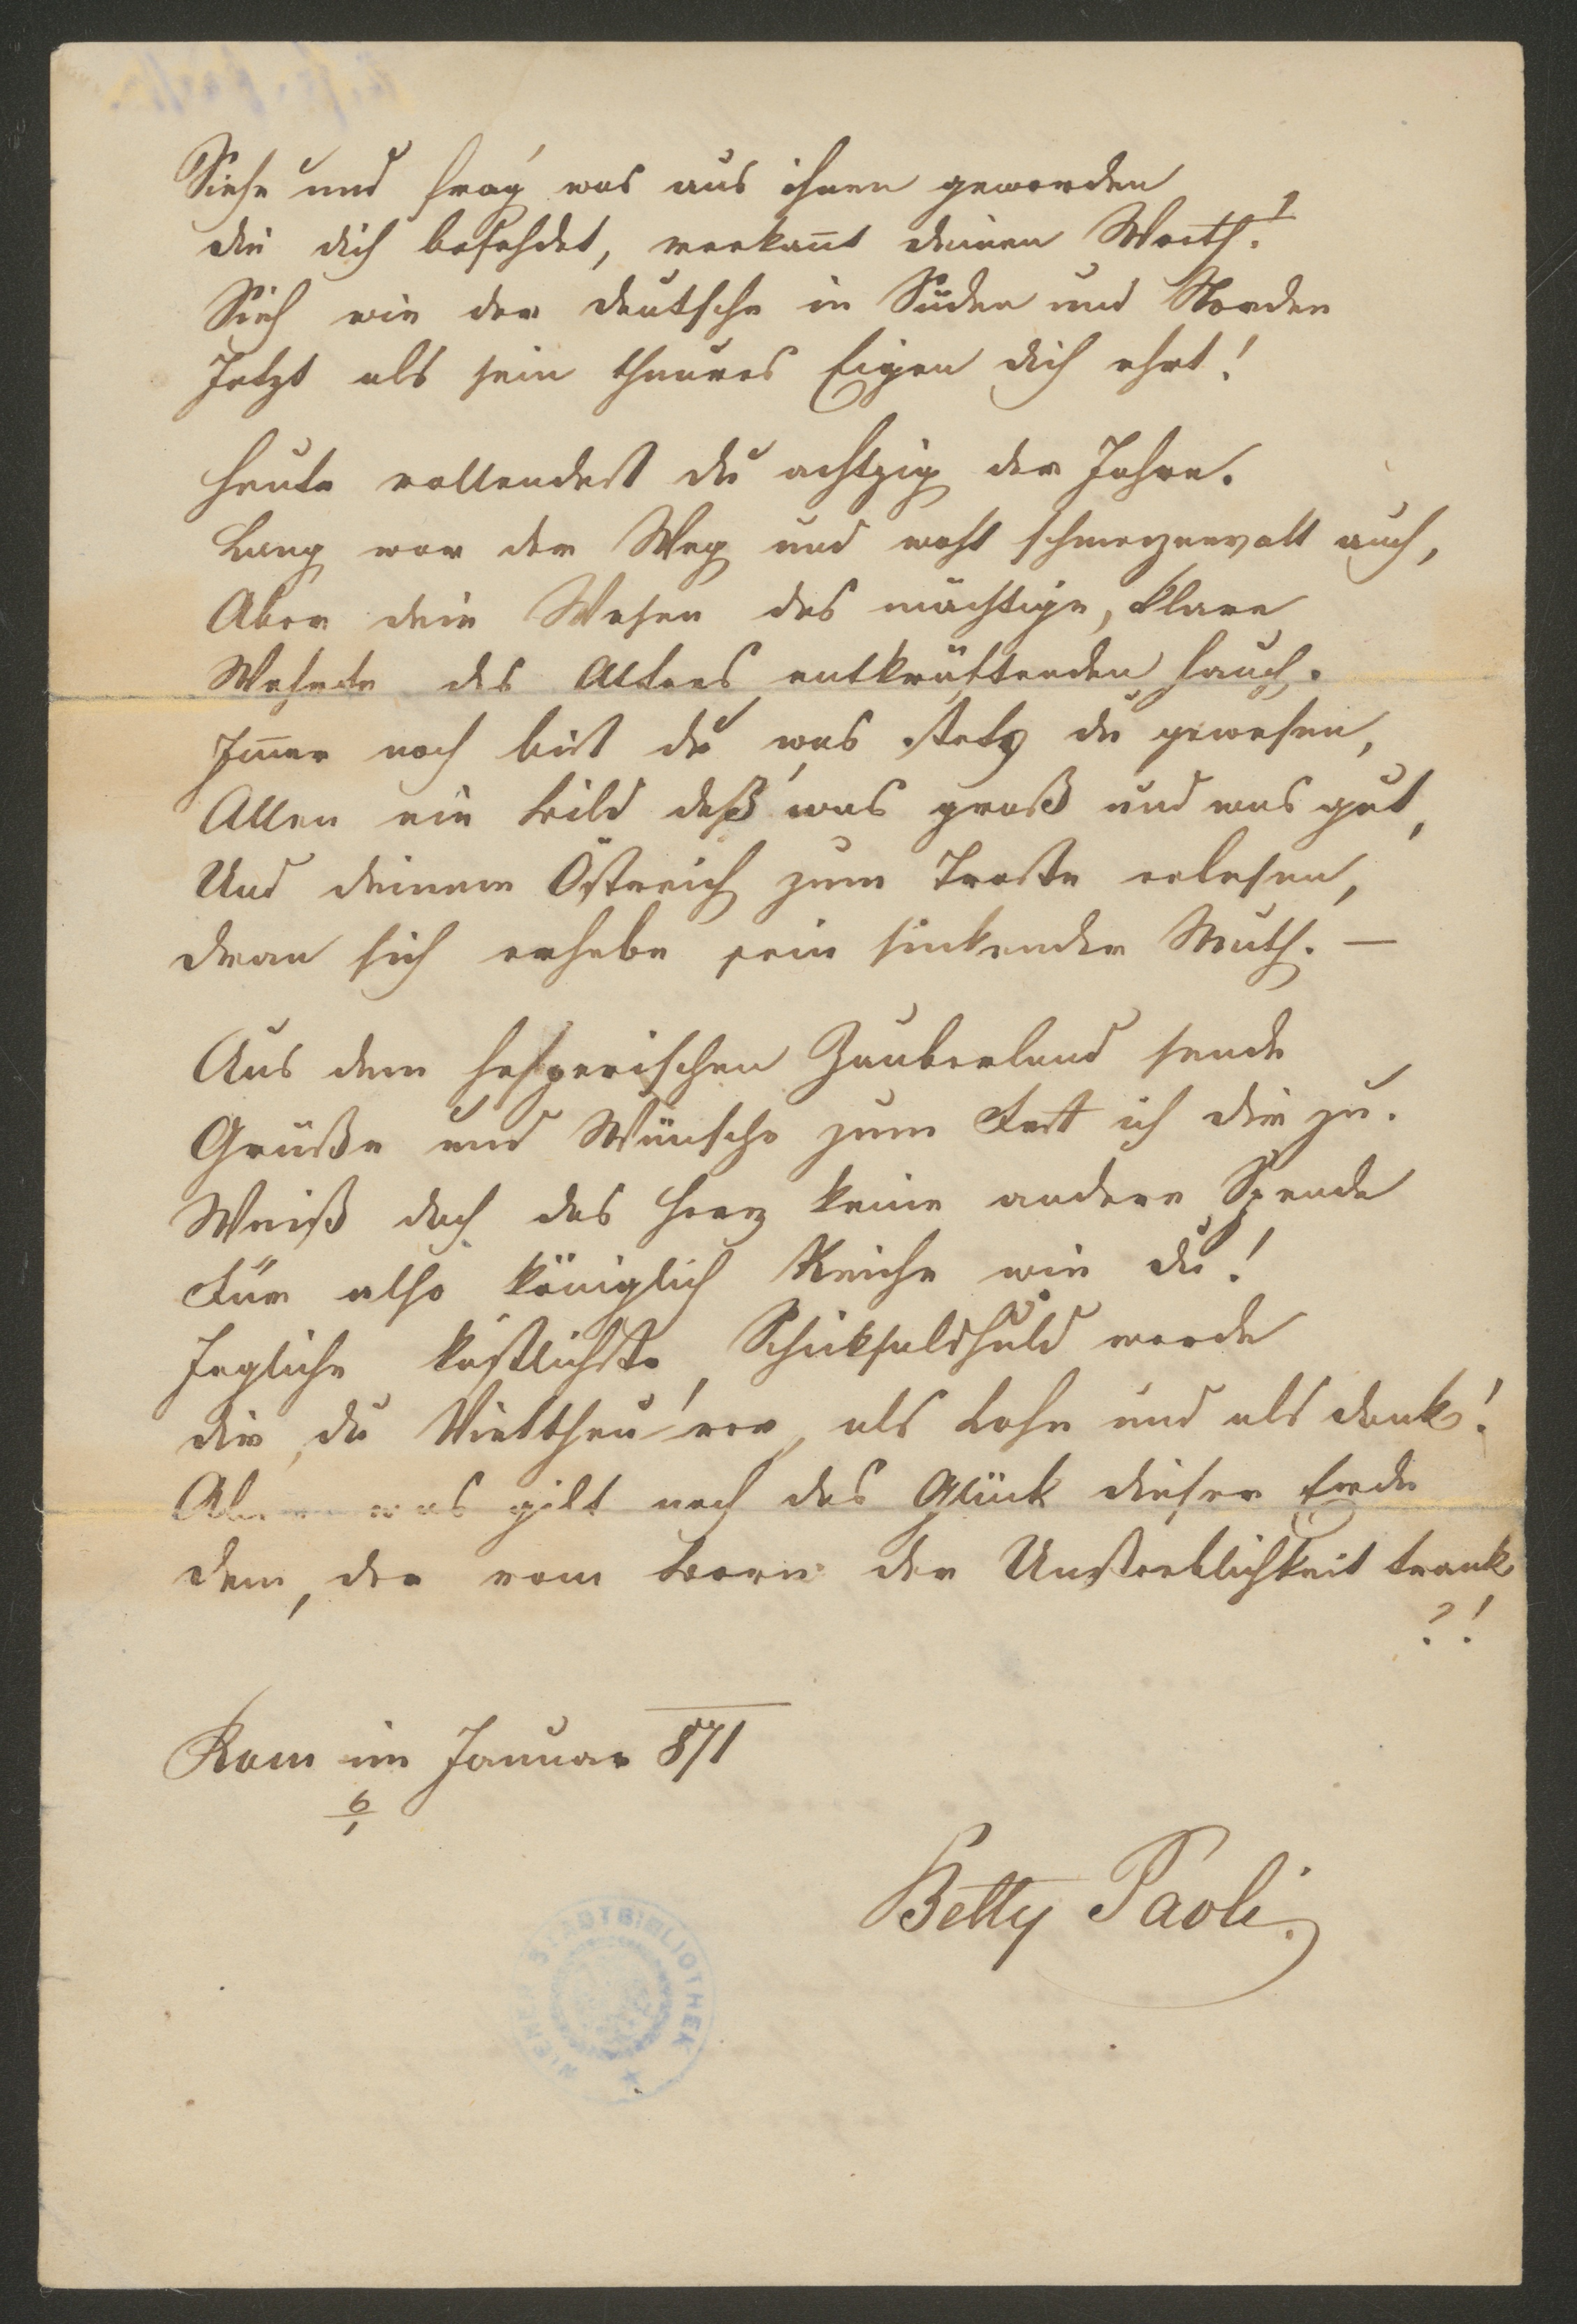 Siehe und frag' was aus ihnen geworden
die dich befehdet, verkan̄t deinen Werth!
Sieh wie der deutsche in Süden und Norden
Jetzt als sein theures Eigen dich ehrt!
Heute vollendest du achtzig der Jahre.
Lang war der Weg und wohl schmerzenvoll auch,
Aber dein Wesen das mächtige, klare
Wehrte des Alters entkräftenden Hauch.
Im̄er noch bist du, was stets du gewesen,
Allen ein Bild deß' was groß und was gut,
Und deinem Östreich zum Troste erlesen,
dran sich erhebe sein sinkender Muth. —
Aus dem hesperischen Zauberland sende
Grüße und Wünsche zum Fest ich dir zu.
Weiß doch das Herz keine andere Spende
Für also königlich Reiche wie du!
Jegliche köstlichste Schicksalshuld werde
dir, du Vieltheu'rer, als Lohn und als dank!
Aber was gilt noch das Glück dieser Erde
dem, der vom Born der Unsterblichkeit trank
?!
Rom im Januar 871
6/1
Betty Paoli.
WIENER STADTBIBLIOTHEK